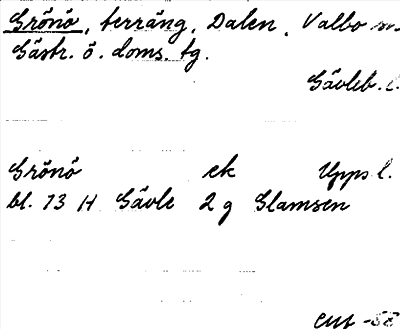 Grönö, terräng, Dalen, Valbo sn.
Gästr. ö. doms. tg.
Gävleb. l.
Grönö ek Upps l.
bl. 13 H Gävle 2 g Glamsen
-58